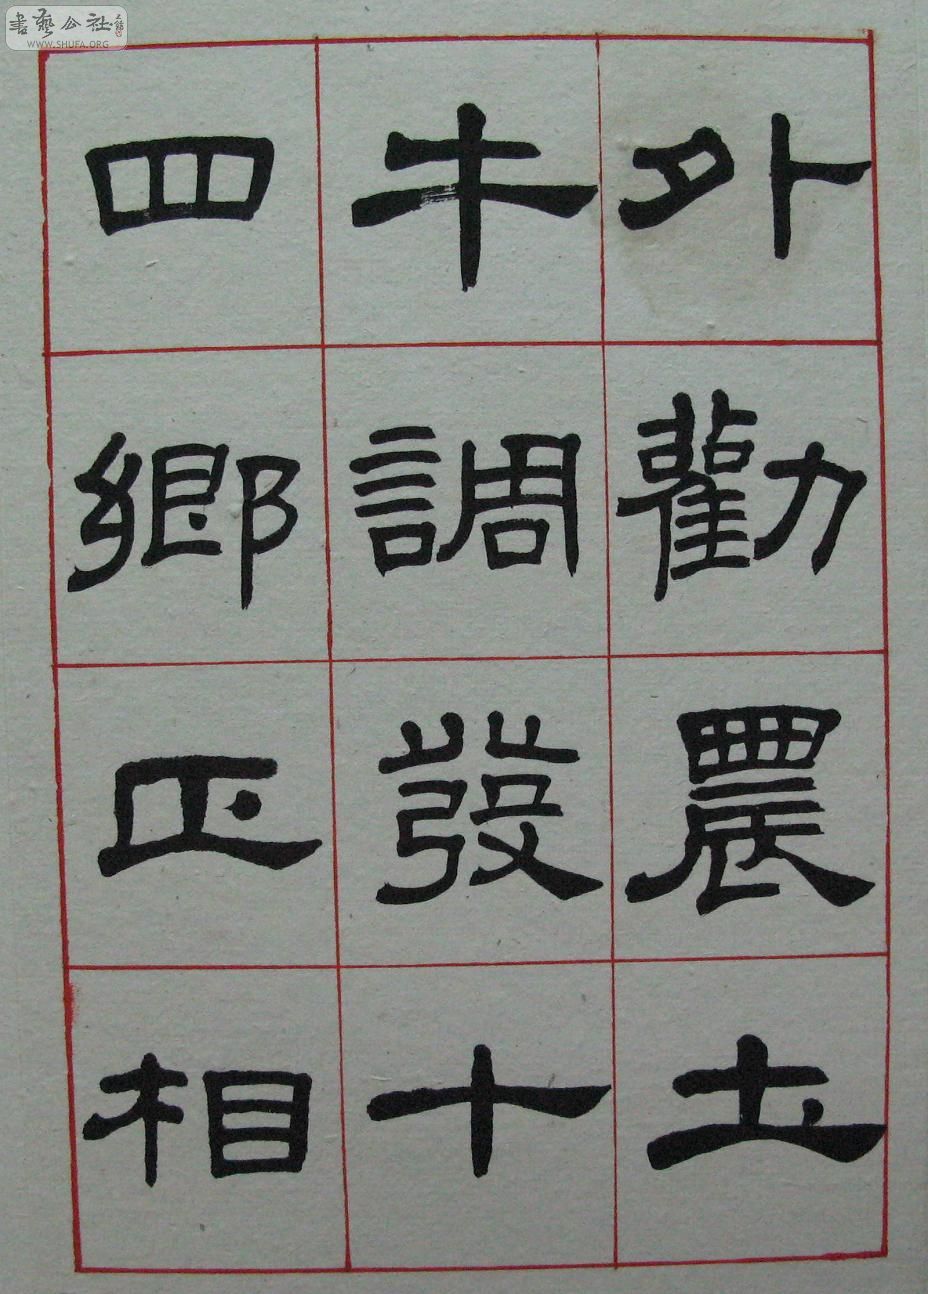 書藝公社
WWW.SHUFA.ORG
外勸農土
牛調發十
四鄉正相